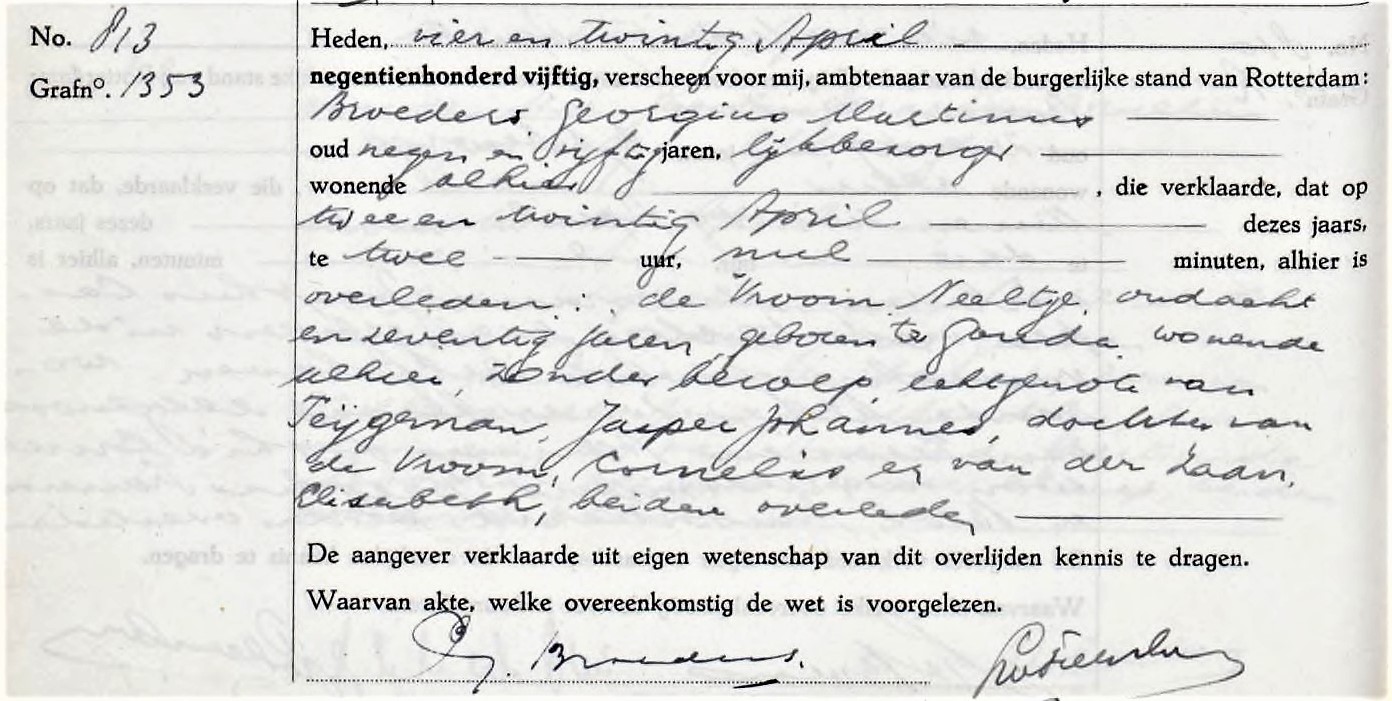 No. 813
Grafnº. 1353
Heden, vier en twintig April
negentienhonderd vijftig, verscheen voor mij, ambtenaar van de burgerlijke stand van Rotterdam:
Broeders, Georgius Martinus
oud negen en vijftig jaren, lijkbezorger
wonende alhier, die verklaarde, dat op
twee en twintig April dezes jaars,
te twee uur, nul minuten, alhier is
overleden: de Vroom, Neeltje, oud acht
en zeventig jaren, geboren te Gouda, wonende
alhier, zonder beroep, echtgenote van
Teijgeman, Jasper Johannes, dochter van
de Vroom, Cornelis en van der Zaan,
Elisabeth, beiden overleden
De aangever verklaarde uit eigen wetenschap van dit overlijden kennis te dragen.
Waarvan akte, welke overeenkomstig de wet is voorgelezen.
G. Broeders.